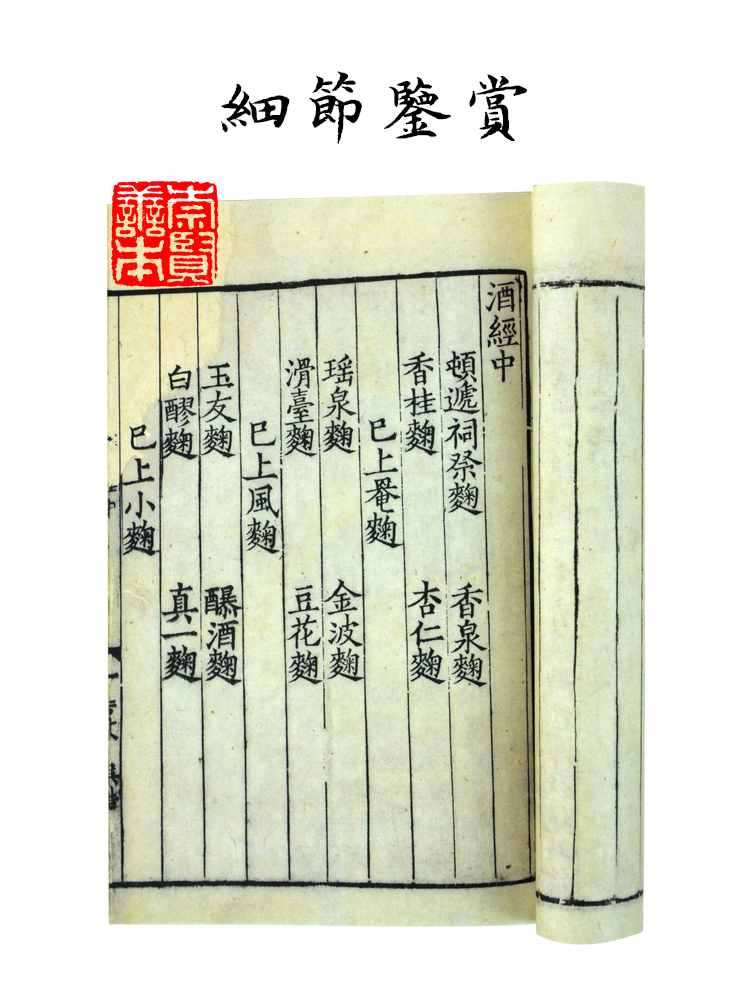 細節鑒賞
崇賢善本
酒經中
頓遞祠祭麴 香泉麴
香桂麴 杏仁麴
巳上罨麴
瑶泉麴 金波麴
滑臺麴 豆花麴
巳上風麴
玉友麴 醁酒麴
白醪麴 真一麴
巳上小麴